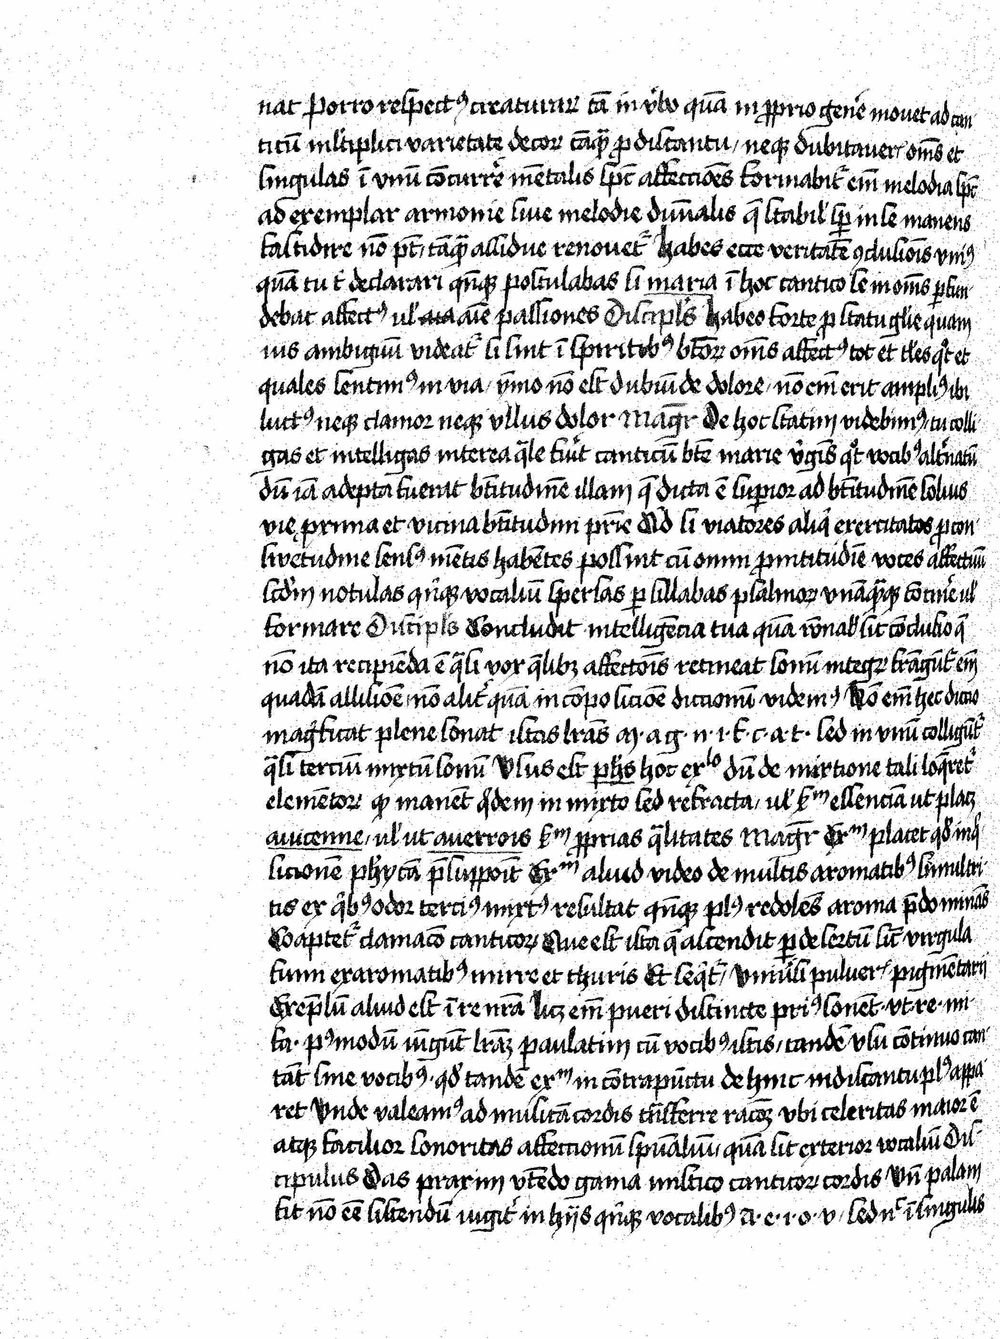 nat Porro respectꝰ creaturaꝝ tā in v̓bo quā in ꝓprio gene᷒ mouet ad can
ticū ml̓tiplici varietate decoꝝ tāqȝ ꝓ discantu / neqȝ dubitaueꝝ om̄s et
singulas ī vnū cōcurre᷒ mētalis spc̄ affectiōes formabit᷒ em̄ melodia spc̄
ad exemplar armonie siue melodie diuīalis q̄ stabil̓ sp̄ in se manens
fastidire nō pt̄ / tāqȝ assidue renouet᷒ Habes ecce veritatē ꝯclusiōis vniꝰ
quā tu t̓ declarari qn̄qȝ postulabas si maria ī hoc cantico se in om̄s ꝑfun
debat affectꝰ ul̓ aīe passiones Discipl̓s Habeo forte ꝓ statu gl̓ie quam
uis ambiguū videat᷒ si sint ī spiritibꝰ btōꝝ om̄s affectꝰ tot et tl̓es qͦt et
quales sentimꝰ in via / ymo nō est dubiū de dolore / nō em̄ erit ampliꝰ ibi
luctꝰ neqȝ clamor neqȝ vllus dolor Magr̄ De hoc statim videbimꝰ / tu colli
gas et intelligas interea q̄le fuit canticū btē marie v̓gis qͦt vocibꝰ alt̓natū
dū iā adepta fuerat btītudinē illam q̄ dicta ē supior ad btītudinē solius
vie prima et vicina btītudini prīe Ad si viatores aliq̄ exercitatos ꝓ con
swetudine sensꝰ mētis habētes possint cū omni ꝓmtitudīe voces affectuū
scd̄m notulas qn̄qȝ vocaliū spersas ꝑ sillabas psalmoꝝ vnāquāqȝ cōtine᷒ ul̓
formare Discipl̓s Concludit intelligēcia tua quā rōnabl̓ sit cōclusio q̄
nō ita recipiēda ē q̄si vox q̄libȝ affectōis retineat sonū integꝝ frāgūt᷒ em̄
quadā allisiōe / nō alit᷒ quā in cōposiciōe dictionū videmꝰ / Nō em̄ hec dictio
magͥficat plene sonat istas lr̄as m · a g · n · i · f · c · a · t · sed in vnū colligūt᷒
q̄si terciū mixtū sonū Usus est ph̄s hoc exˡᵒ dū de mixtione tali loq̄ret᷒
elemētoꝝ qͦ manēt qͥdem in mixto sed refracta / ul̓ scᵈᵐ essenciā ut placȝ
auicenne / ul̓ ut auerrois scᵐ ꝓprias q̄litates Magr̄ Exᵐ placet qd̓ inq̄
sicionē phȳcā p̄supponit Exᵐ aliud video de multis aromatibꝰ simul tri
tis ex qͥbꝰ odor terciꝰ mixtꝰ resultat qn̄qȝ plꝰ redolēs aroma p̄dominās
Coaptet᷒ clamacō canticoꝝ Que est ista q̄ ascendit ꝑ desertū sic̄ virgula
fumi ex aromatibꝰ mirre et thuris Et seqͥt᷒ / vniu̓si pulueꝝ pigmētarii
Exeplū aliud est ī re nr̄a licȝ em̄ pueri distincte priꝰ sonēt · ut · re · mi ·
fa · pꝰmodū iūgūt lr̄aȝ paulatim cū vocibꝰ istis / tandē vsu cōtinuo can
tāt sine vocibꝰ · qd̓ tandē exᵐ in cōtrapūctu de hinc in discantu plꝰ appa
ret Unde valeamꝰ ad musicā cordis trāsferre racōȝ vbi celeritas maior ē
atqȝ facilior sonoritas affectionū spūaliū / quā sit exterior vocaliū Dis
cipulus Das praxim vtēdo gama mistico canticoꝝ cordis Un̄ palam
fit nō eē sistendū iugit᷒ in hijs qn̄qȝ vocalibꝰ a · e · i · o · v / sed nͨ ī singulis